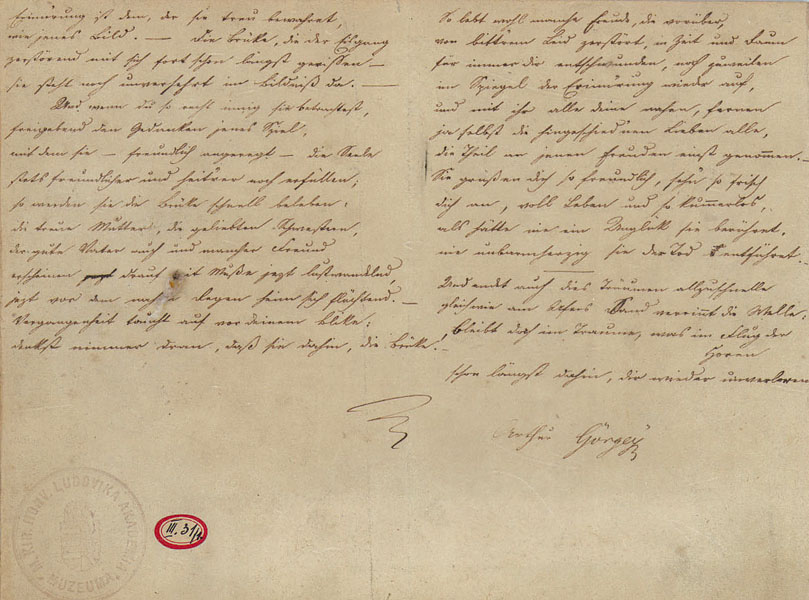 Erinnerung ist dem, der sie treu bewahret,
wie jenes Bild. — Die Brüke, die der Eisgang
zerstörend mit sich fort schon längst gerissen —
sie steht noch unversehrt im Bildniß da. —
Und wenn du so recht innig sie betrachtest,
freigebend den Gedanken jenes Spiel,
mit dem sie — freundlich angeregt — die Seele
stets freundlicher und heit'rer noch erfüllen;
so werden sie die Brüke schnell beleben:
die treue Mutter, die geliebten Schwestern,
der gute Vater auch und mancher Freund
erscheinen drauf mit Muße jezt lustwandelnd,
jezt vor dem nahen Regen heim sich flüchtend. —
Vergangenheit taucht auf vor deinem Blike;
denkst nimmer dran, daß sie dahin, die Brüke! —
So lebt wohl manche Freude, die vorüber,
von bitt'rem Leid zerstört, in Zeit und Raum
für immer dir entschwunden, noch zuweilen
im Spiegel der Erinnerung wieder auf,
und mit ihr alle deine nahen, fernen
ja selbst die hingeschied'nen Lieben alle,
die Theil an jenen Freuden einst genommen. —
Sie grüßen dich so freundlich, seh'n so frisch
dich an, voll Leben und so kummerlos,
als hätte nie ein Unglük sie berührt,
nie unbarmherzig sie der Tod entführt. —
Und endet auch dies Träumen allzuschnelle
gleichwie am Ufers Sand verrinnt die Welle;
bleibt doch im Traume, was im Flug der
Horen
schon längst dahin, dir wieder unverloren
Arthur Görgey
M. KIR. HONV. LUDOVIKA AKADÉMIA MUZEUMA
III. 31/1